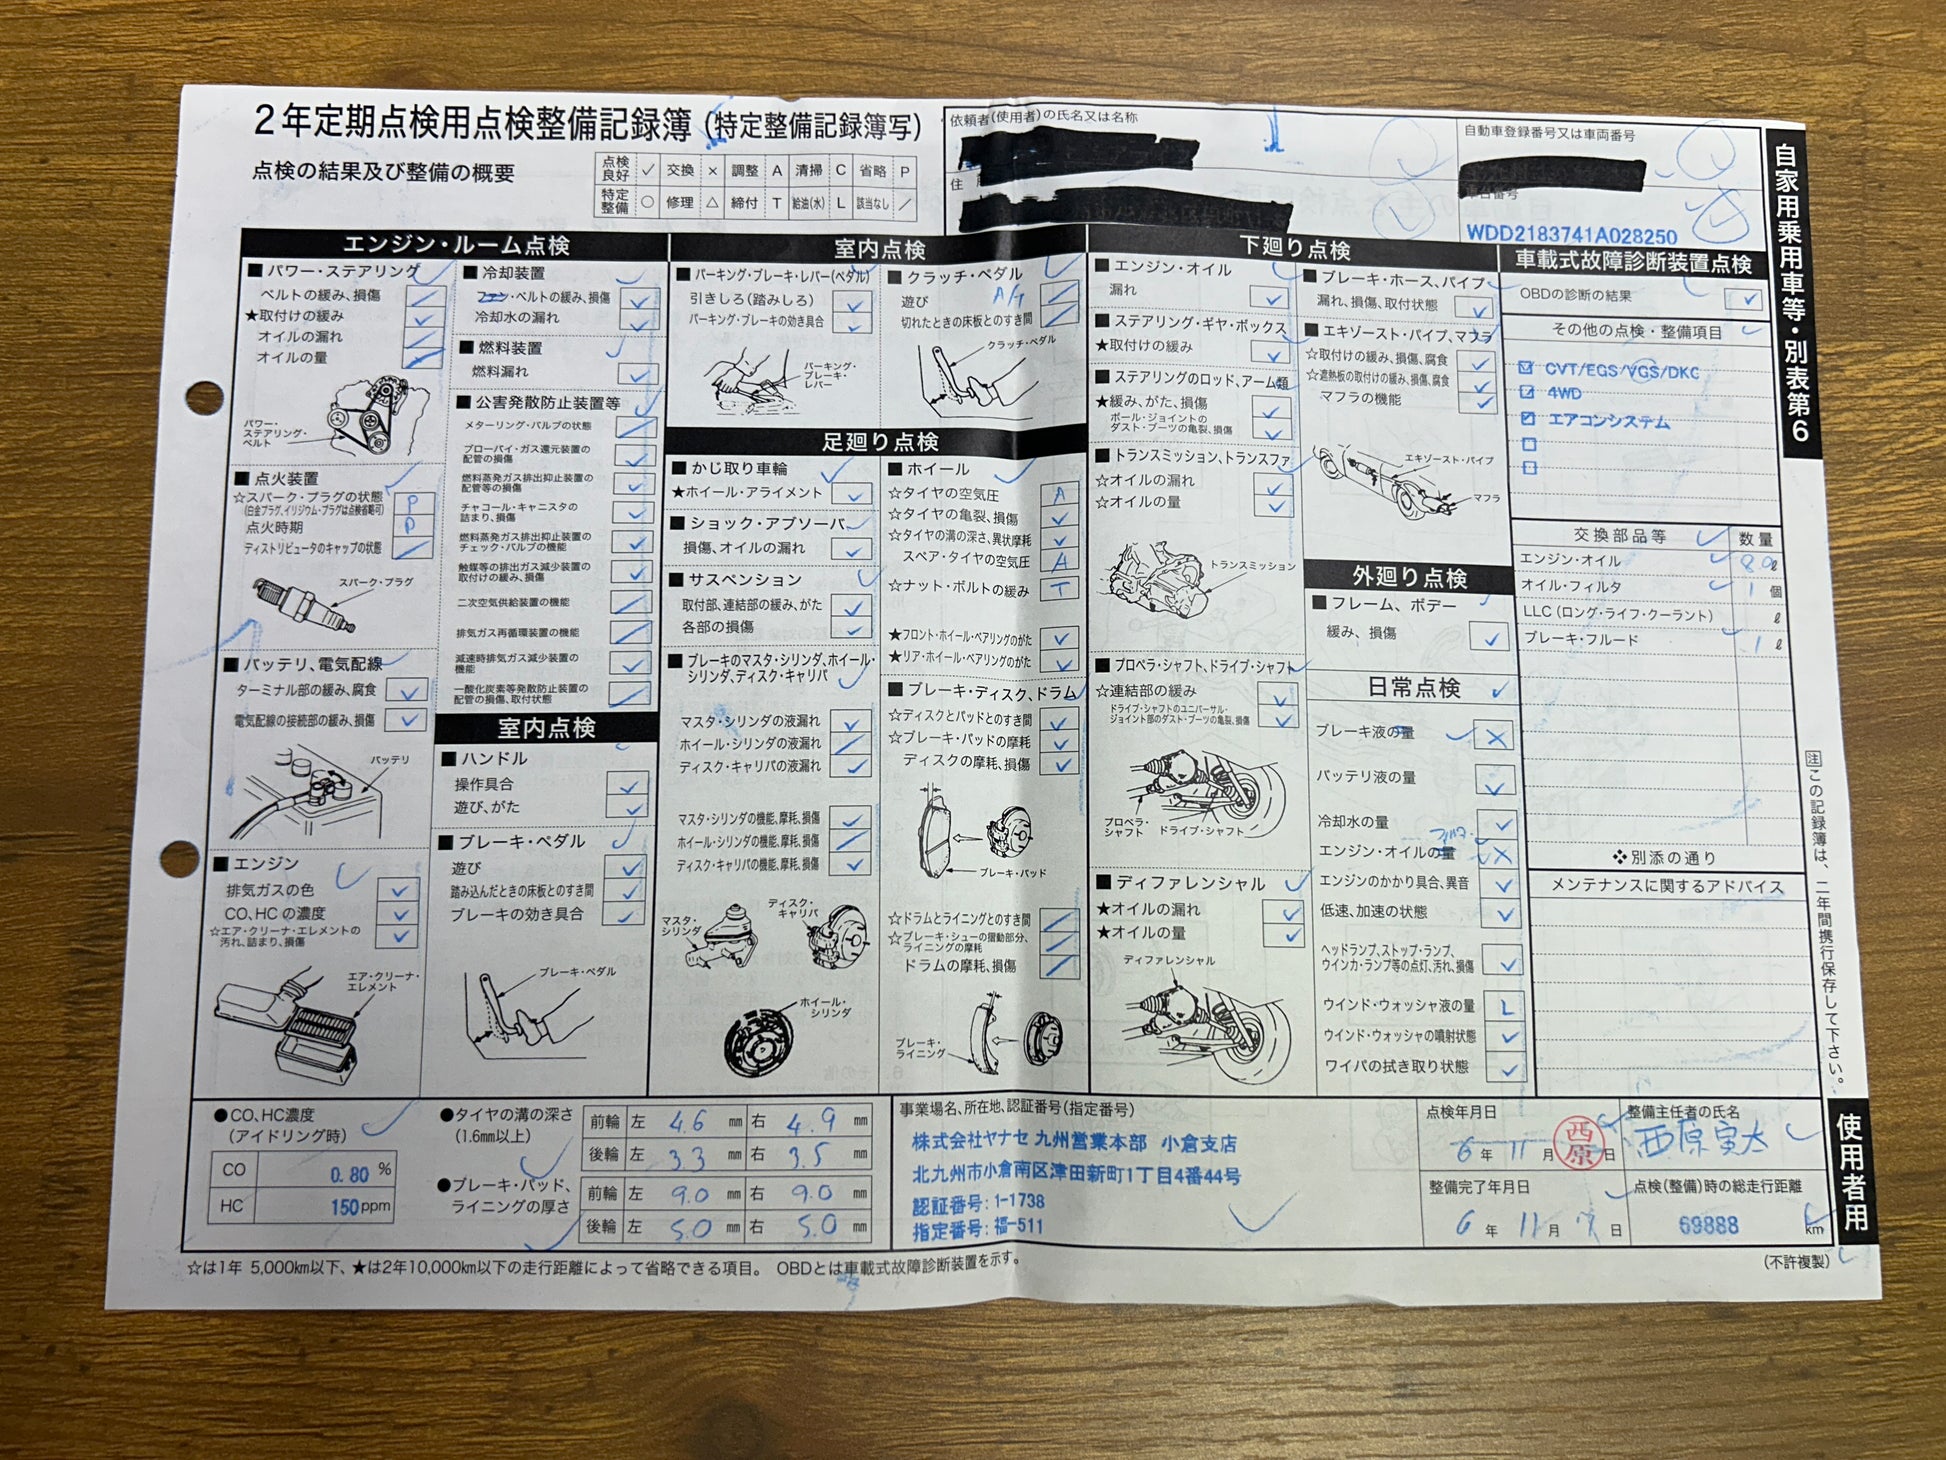 2年定期点検用点検整備記録簿(特定整備記録簿写)
点検の結果及び整備の概要
点検良好 ✓ 交換 × 調整 A 清掃 C 省略 P
特定整備 ○ 修理 △ 締付 T 給油(水) L 該当なし /
依頼者(使用者)の氏名又は名称
住
自動車登録番号又は車両番号
車台番号
WDD2183741A028250
自家用乗用車等・別表第6
エンジン・ルーム点検
■ パワー・ステアリング
ベルトの緩み、損傷 /
★取付けの緩み ✓
オイルの漏れ
オイルの量
パワー・ステアリング・ベルト
■ 点火装置
☆スパーク・プラグの状態 P
(白金プラグ、イリジウム・プラグは点検省略可)
点火時期 P
ディストリビュータのキャップの状態 /
スパーク・プラグ
■ バッテリ、電気配線
ターミナル部の緩み、腐食 ✓
電気配線の接続部の緩み、損傷 ✓
バッテリ
■ エンジン
排気ガスの色 ✓
CO、HCの濃度 ✓
☆エア・クリーナ・エレメントの汚れ、詰まり、損傷 ✓
エア・クリーナ・エレメント
■ 冷却装置
ファン・ベルトの緩み、損傷 ✓
冷却水の漏れ ✓
■ 燃料装置
燃料漏れ ✓
■ 公害発散防止装置等
メターリング・バルブの状態 /
ブローバイ・ガス還元装置の配管の損傷 ✓
燃料蒸発ガス排出抑止装置の配管等の損傷 ✓
チャコール・キャニスタの詰まり、損傷 ✓
燃料蒸発ガス排出抑止装置のチェック・バルブの機能 ✓
触媒等の排出ガス減少装置の取付けの緩み、損傷 ✓
二次空気供給装置の機能 /
排気ガス再循環装置の機能 /
減速時排気ガス減少装置の機能 ✓
一酸化炭素等発散防止装置の配管の損傷、取付状態 /
室内点検
■ ハンドル
操作具合 ✓
遊び、がた ✓
■ ブレーキ・ペダル
遊び ✓
踏み込んだときの床板とのすき間 ✓
ブレーキの効き具合 ✓
ブレーキ・ペダル
室内点検
■ パーキング・ブレーキ・レバー(ペダル)
引きしろ(踏みしろ) ✓
パーキング・ブレーキの効き具合 ✓
パーキング・ブレーキ・レバー
■ クラッチ・ペダル
遊び A/T /
切れたときの床板とのすき間 /
クラッチ・ペダル
足廻り点検
■ かじ取り車輪
★ホイール・アライメント ✓
■ ショック・アブソーバ
損傷、オイルの漏れ ✓
■ サスペンション
取付部、連結部の緩み、がた ✓
各部の損傷 ✓
■ ブレーキのマスタ・シリンダ、ホイール・シリンダ、ディスク・キャリパ
マスタ・シリンダの液漏れ ✓
ホイール・シリンダの液漏れ /
ディスク・キャリパの液漏れ ✓
マスタ・シリンダの機能、摩耗、損傷 ✓
ホイール・シリンダの機能、摩耗、損傷 /
ディスク・キャリパの機能、摩耗、損傷 ✓
マスタ・シリンダ
ディスク・キャリパ
ホイール・シリンダ
■ ホイール
☆タイヤの空気圧 A
☆タイヤの亀裂、損傷 ✓
☆タイヤの溝の深さ、異状摩耗 ✓
スペア・タイヤの空気圧 A
☆ナット・ボルトの緩み T
★フロント・ホイール・ベアリングのがた ✓
★リア・ホイール・ベアリングのがた ✓
■ ブレーキ・ディスク、ドラム
☆ディスクとパッドとのすき間 ✓
☆ブレーキ・パッドの摩耗 ✓
ディスクの摩耗、損傷 ✓
ブレーキ・パッド
☆ドラムとライニングとのすき間 /
☆ブレーキ・シューの摺動部分、ライニングの摩耗 /
ドラムの摩耗、損傷 /
ブレーキ・ライニング
下廻り点検
■ エンジン・オイル
漏れ ✓
■ ステアリング・ギヤ・ボックス
★取付けの緩み ✓
■ ステアリングのロッド、アーム類
★緩み、がた、損傷 ✓
ボール・ジョイントのダスト・ブーツの亀裂、損傷 ✓
■ トランスミッション、トランスファ
☆オイルの漏れ ✓
☆オイルの量 ✓
トランスミッション
■ プロペラ・シャフト、ドライブ・シャフト
☆連結部の緩み ✓
ドライブ・シャフトのユニバーサル・ジョイント部のダスト・ブーツの亀裂、損傷 ✓
プロペラ・シャフト
ドライブ・シャフト
■ ディファレンシャル
★オイルの漏れ ✓
★オイルの量 ✓
ディファレンシャル
■ ブレーキ・ホース、パイプ
漏れ、損傷、取付状態 ✓
■ エキゾースト・パイプ、マフラ
☆取付けの緩み、損傷、腐食 ✓
☆遮熱板の取付けの緩み、損傷、腐食 ✓
マフラの機能 ✓
エキゾースト・パイプ
マフラ
外廻り点検
■ フレーム、ボデー
緩み、損傷 ✓
日常点検
ブレーキ液の量 ×
バッテリ液の量 ✓
冷却水の量 ✓
エンジン・オイルの量 ×
エンジンのかかり具合、異音 ✓
低速、加速の状態 ✓
ヘッドランプ、ストップ・ランプ、ウインカ・ランプ等の点灯、汚れ、損傷 ✓
ウインド・ウォッシャ液の量 L
ウインド・ウォッシャの噴射状態 ✓
ワイパの拭き取り状態 ✓
車載式故障診断装置点検
OBDの診断の結果 ✓
その他の点検・整備項目
☑ CVT/EGS/VGS/DKG
☑ 4WD
☑ エアコンシステム
□
□
交換部品等 数量
エンジン・オイル 8.0ℓ
オイル・フィルタ 1個
LLC(ロング・ライフ・クーラント) ℓ
ブレーキ・フルード 1ℓ
❖別添の通り
メンテナンスに関するアドバイス
注 この記録簿は、二年間携行保存して下さい。
使用者用
●CO、HC濃度
(アイドリング時)
CO 0.80 %
HC 150 ppm
●タイヤの溝の深さ
(1.6mm以上)
前輪 左 4.6 mm 右 4.9 mm
後輪 左 3.3 mm 右 3.5 mm
●ブレーキ・パッド、ライニングの厚さ
前輪 左 9.0 mm 右 9.0 mm
後輪 左 5.0 mm 右 5.0 mm
事業場名、所在地、認証番号(指定番号)
株式会社ヤナセ 九州営業本部 小倉支店
北九州市小倉南区津田新町1丁目4番44号
認証番号:1-1738
指定番号:福-511
点検年月日
6年 11月 日
西原
整備主任者の氏名
西原寅太
整備完了年月日
6年 11月 7日
点検(整備)時の総走行距離
69888 km
☆は1年 5,000km以下、★は2年10,000km以下の走行距離によって省略できる項目。 OBDとは車載式故障診断装置を示す。
(不許複製)